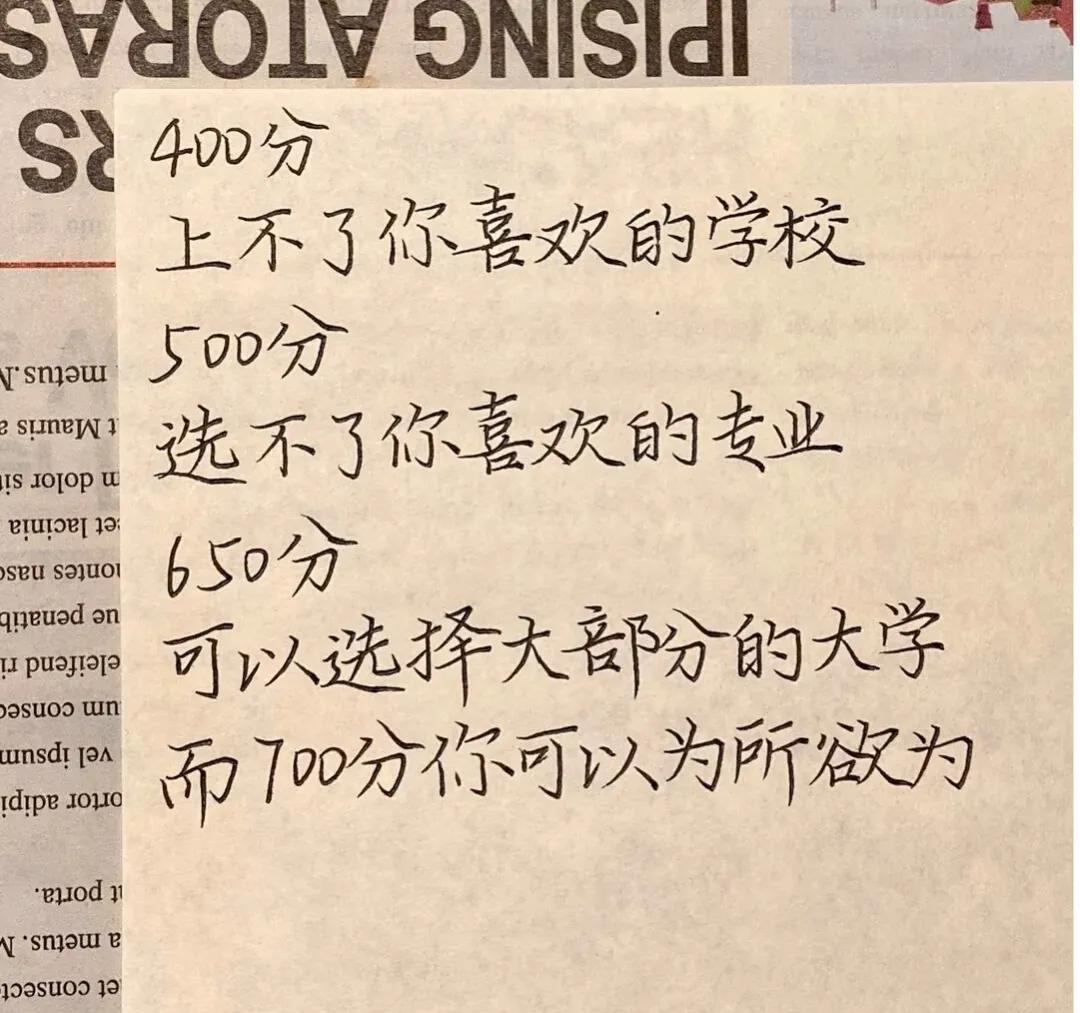 IPISING ATORAS
RS
400分
上不了你喜欢的学校
500分
选不了你喜欢的专业
650分
可以选择大部分的大学
而700分你可以为所欲为
metus.
t Mauris a
m dolor sit
et lacinia
montes nasc
ue penatib
eleifend ri
um consec
vel ipsum
ortor adipi
t porta.
a metus. M
et consecte